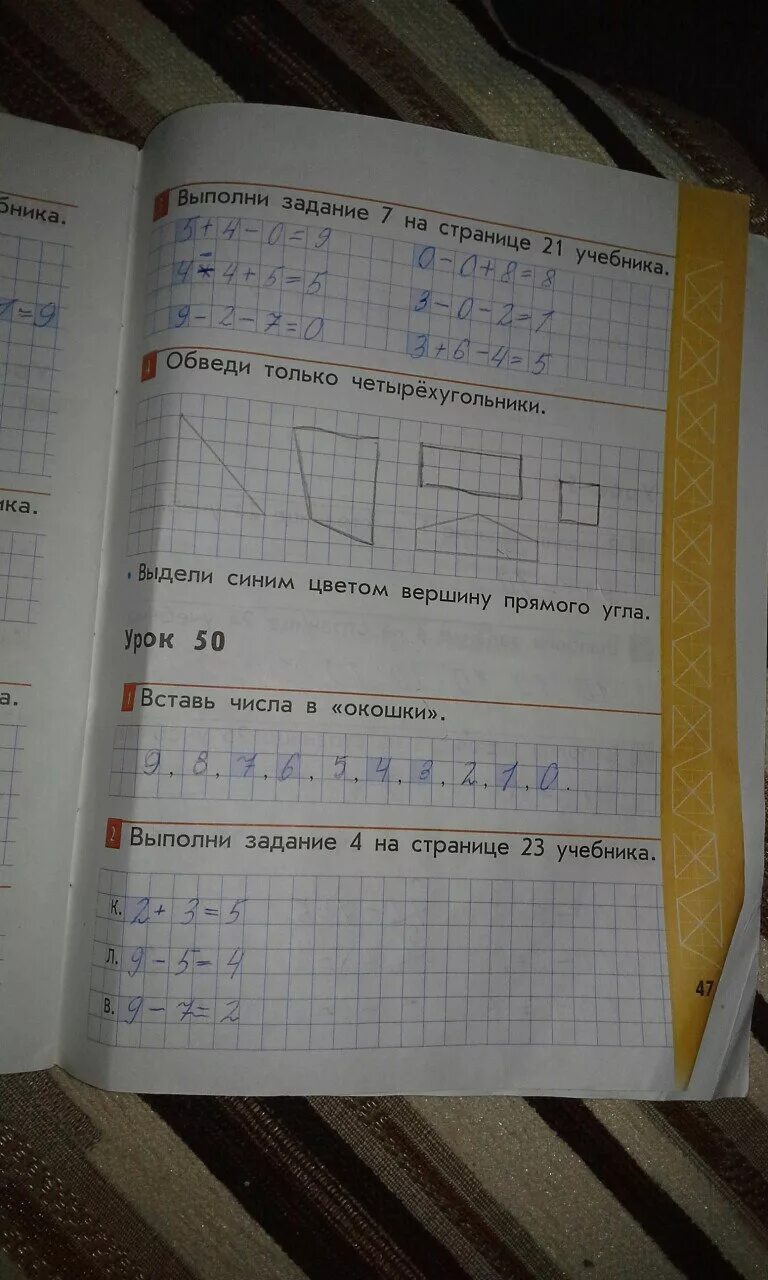 бника.
1=9
ика.
а.
3 Выполни задание 7 на странице 21 учебника.
5+4-0=9
0-0+8=8
4-4+5=5
3-0-2=1
9-2-7=0
3+6-4=5
4 Обведи только четырёхугольники.
• Выдели синим цветом вершину прямого угла.
Урок 50
1 Вставь числа в «окошки».
9, 8, 7, 6, 5, 4, 3, 2, 1, 0.
2 Выполни задание 4 на странице 23 учебника.
К. 2+3=5
Л. 9-5=4
В. 9-7=2
47